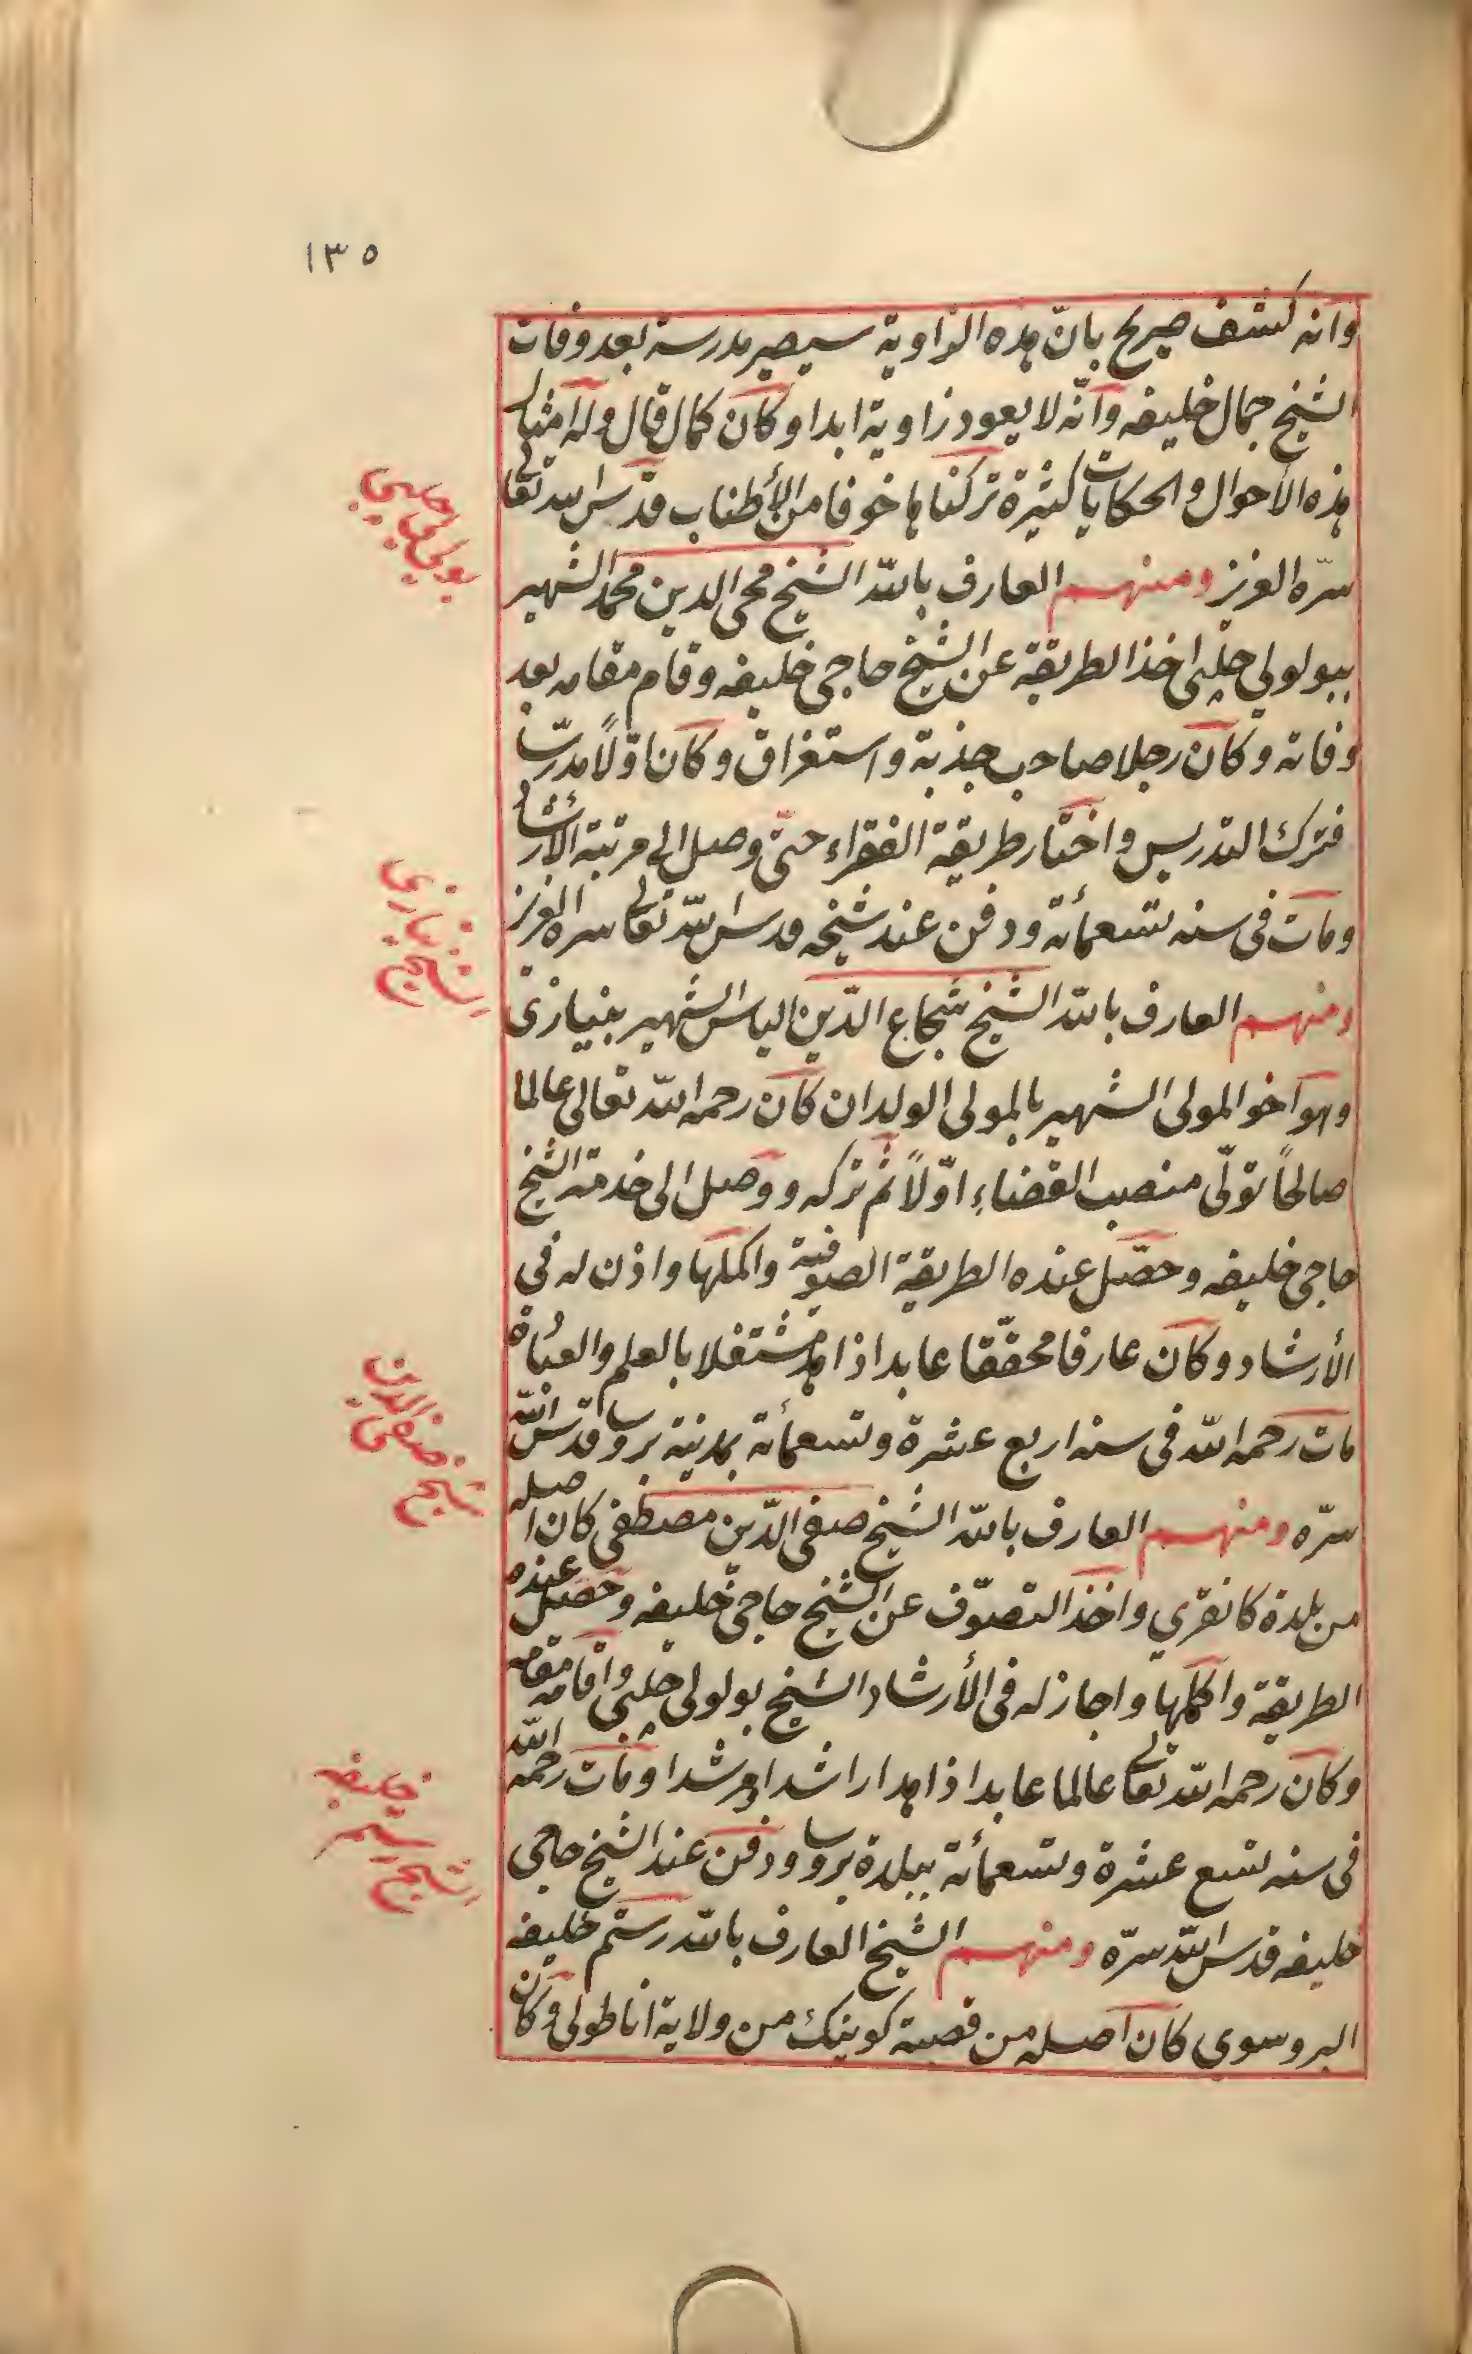 ١٣٥
وانه كشف صريح بانّ هذه الزاوية سيصير مدرسة بعد وفات
الشيخ جمال خليفه وانّه لا يعود زاوية ابدا وكان كمال قال وله امثال
هذه الأحوال والحكايات كثيرة تركناها خوفا من الأطناب قدّس الله تعالى
سرّه العزيز ومنهم العارف بالله الشيخ محي الدين محمد الشهير
ببولولي چلبي اخذ الطريقة عن الشيخ حاجي خليفه وقام مقامه بعد
وفاته وكان رجلا صاحب جذبة واستغراق وكان اوّلاً مدرّسا
فترك التدريس واختار طريقة الفقراء حتّى وصل الى مرتبة الأرشاد
ومات في سنه تسعمأئة ودفن عند شيخه قدس الله تعالى سره العزيز
ومنهم العارف بالله الشيخ شجاع الدّين الياس الشهير بنيازى
وهو اخو المولى الشهير بالمولى الولدان كان رحمه الله تعالى عالما
صالحاً تولّى منصب القضاءِ اوّلاً ثم تركه ووصل الى خدمة الشيخ
حاجي خليفه وحصّل عنده الطريقة الصوفية واكملها واذن له في
الأرشاد وكان عارفا محقّقا عابدا زاهدا مشتغلا بالعلم والعبادة
مات رحمه الله في سنه اربع عشرة وتسعمأئة بمدينة بروسا قدّس الله
سرّه ومنهم العارف بالله الشيخ صفي الدّين مصطفى كان اصله
من بلدة كانقري واخذ التصوّف عن الشيخ حاجي خليفه وحصّل عنده
الطريقة واكملها واجاز له في الأرشاد الشيخ بولولي چلبي واقامه مقامه
وكان رحمه الله تعالى عالما عابدا زاهدا راشدا مرشدا ومات رحمه الله
في سنه تسع عشرة وتسعمأئة ببلدة بروسا ودفن عند الشيخ حاجي
خليفه قدس الله سرّه ومنهم الشيخ العارف بالله رستم خليفه
البروسوي كان اصله من قصبة كوينك من ولاية اناطولي وكان
بولولي چلبي
الشيخ نيازى
شيخ صفي الدين
الشيخ رستم خليفه